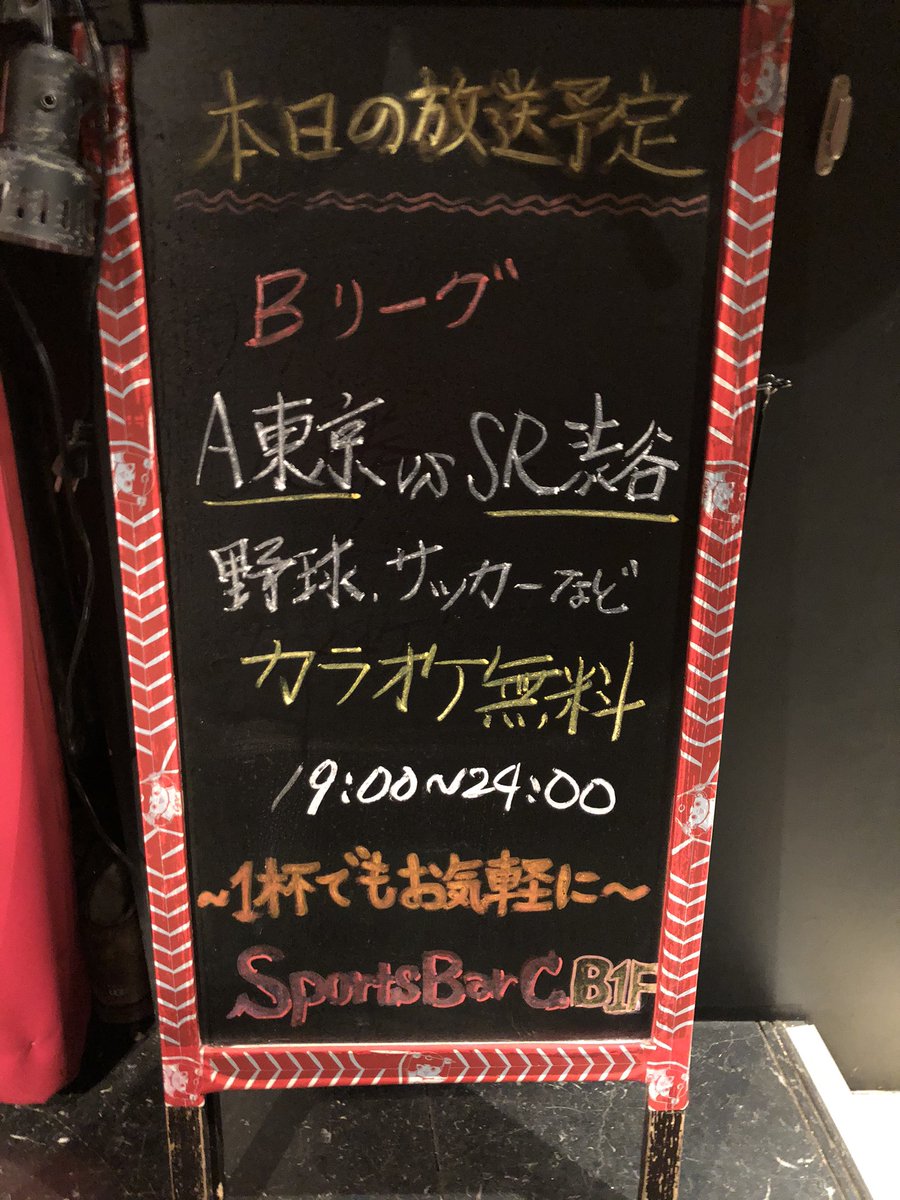 本日の放送予定
Bリーグ
A東京 vs SR渋谷
野球、サッカーなど
カラオケ無料
19:00~24:00
~1杯でもお気軽に~
SportsBar C. B1F